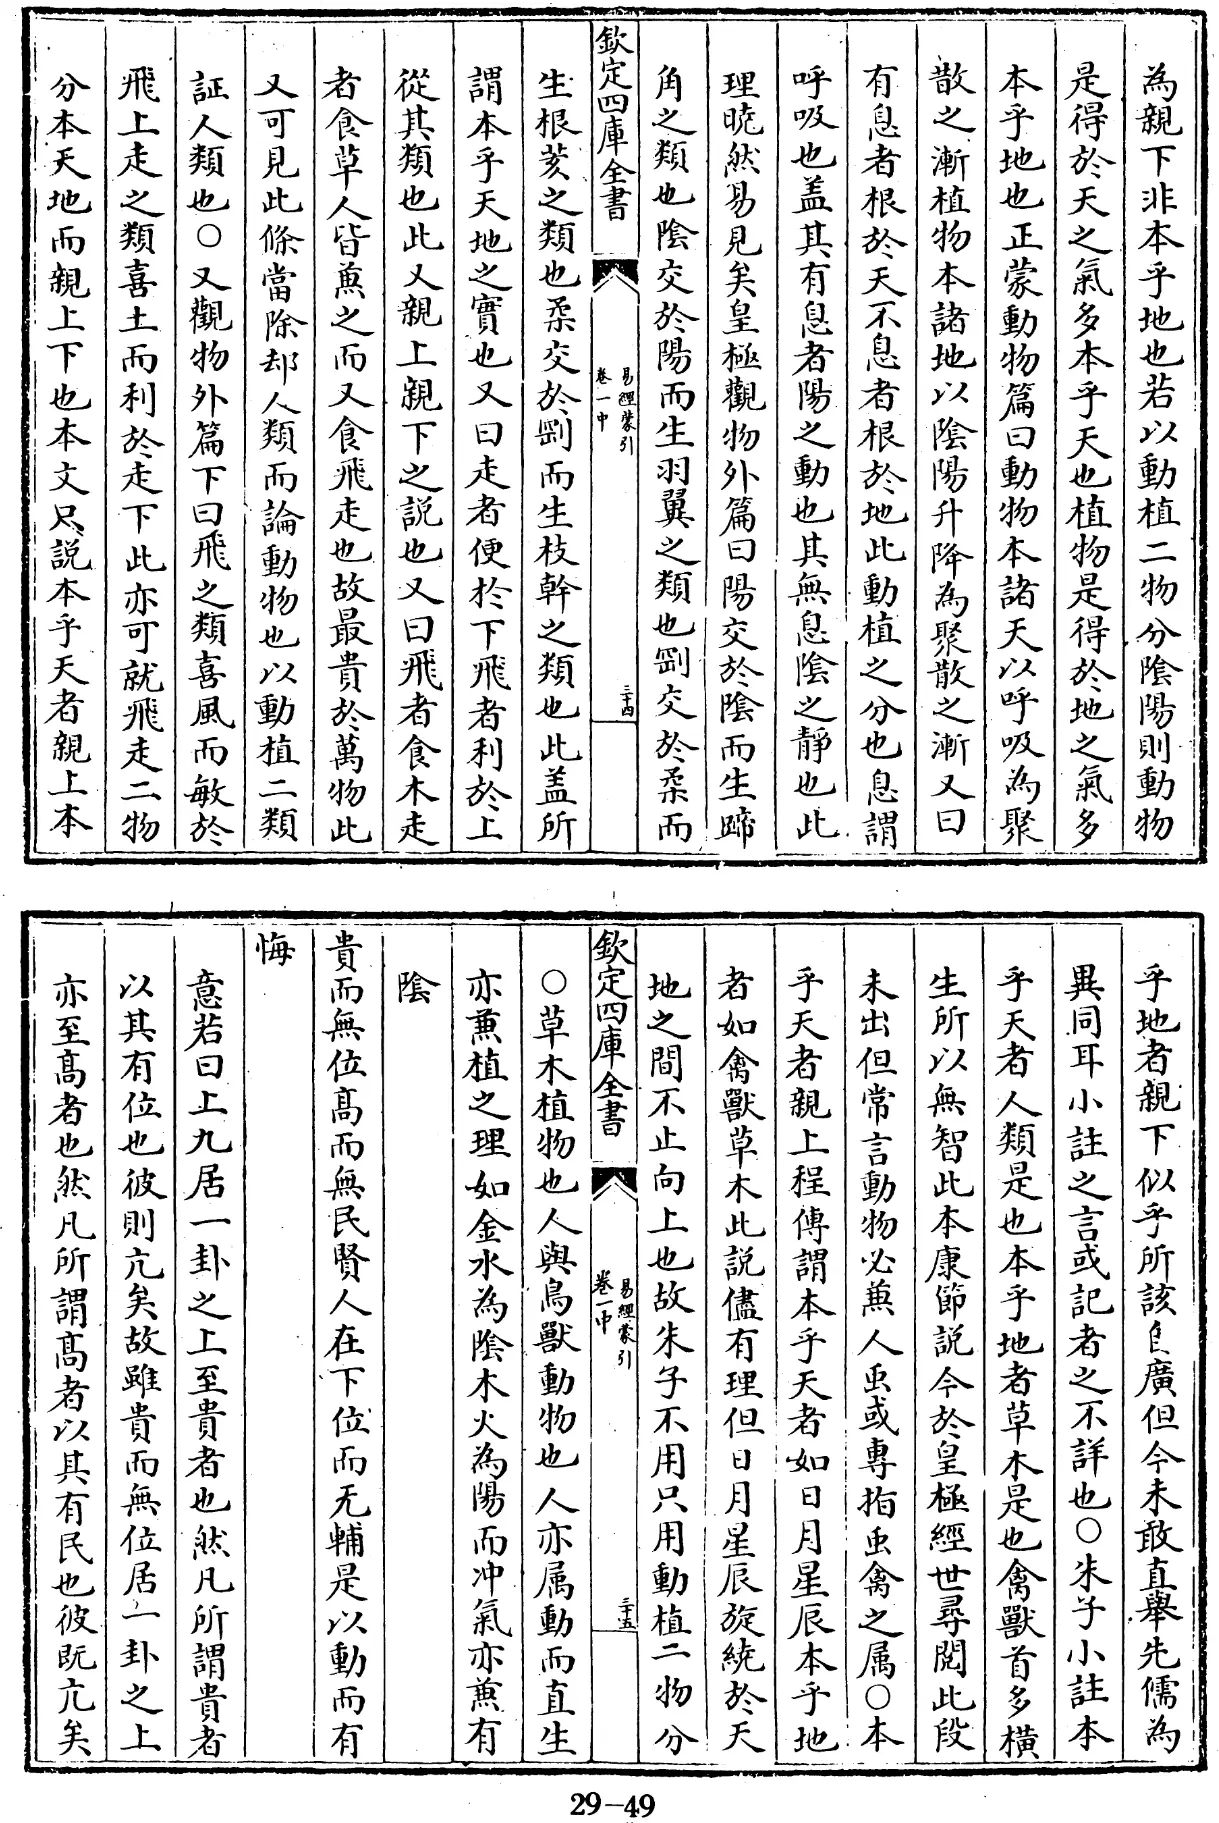 為親下非本乎地也若以動植二物分陰陽則動物
是得於天之氣多本乎天也植物是得於地之氣多
本乎地也正蒙動物篇曰動物本諸天以呼吸為聚
散之漸植物本諸地以陰陽升降為聚散之漸又曰
有息者根於天不息者根於地此動植之分也息謂
呼吸也盖其有息者陽之動也其無息陰之靜也此
理曉然易見矣皇極觀物外篇曰陽交於陰而生蹄
角之類也陰交於陽而生羽翼之類也剛交於柔而
欽定四庫全書
易經蒙引
卷一中
三十四
生根荄之類也柔交於剛而生枝幹之類也此盖所
謂本乎天地之實也又曰走者便於下飛者利於上
從其類也此又親上親下之説也又曰飛者食木走
者食草人皆兼之而又食飛走也故最貴於萬物此
又可見此條當除却人類而論動物也以動植二類
証人類也○又觀物外篇下曰飛之類喜風而敏於
飛上走之類喜土而利於走下此亦可就飛走二物
分本天地而親上下也本文只説本乎天者親上本
乎地者親下似乎所該自廣但今未敢直舉先儒為
異同耳小註之言或記者之不詳也○朱子小註本
乎天者人類是也本乎地者草木是也禽獸首多橫
生所以無智此本康節説今於皇極經世尋閱此段
未出但常言動物必兼人虫或專指虫禽之属○本
乎天者親上程傳謂本乎天者如日月星辰本乎地
者如禽獸草木此説儘有理但日月星辰旋繞於天
地之間不止向上也故朱子不用只用動植二物分
欽定四庫全書
易經蒙引
卷一中
三十五
○草木植物也人與鳥獸動物也人亦属動而直生
亦兼植之理如金水為陰木火為陽而冲氣亦兼有
陰
貴而無位高而無民賢人在下位而无輔是以動而有
悔
意若曰上九居一卦之上至貴者也然凡所謂貴者
以其有位也彼則亢矣故雖貴而無位居一卦之上
亦至高者也然凡所謂高者以其有民也彼既亢矣
29-49